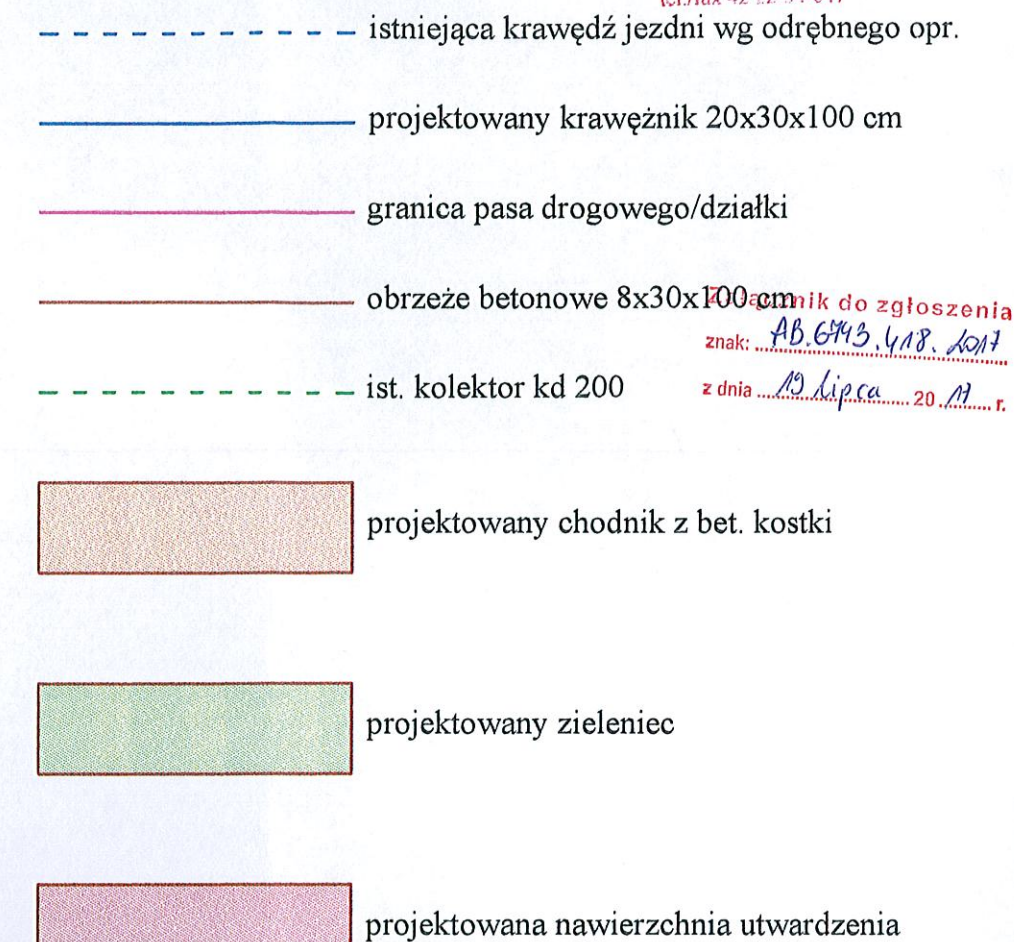 istniejąca krawędź jezdni wg odrębnego opr.
projektowany krawężnik 20x30x100 cm
granica pasa drogowego/działki
obrzeże betonowe 8x30x100 cm
do zgłoszenia
znak: AB.6743.418.2017
ist. kolektor kd 200
z dnia 19 lipca 20 17 r.
projektowany chodnik z bet. kostki
projektowany zieleniec
projektowana nawierzchnia utwardzenia